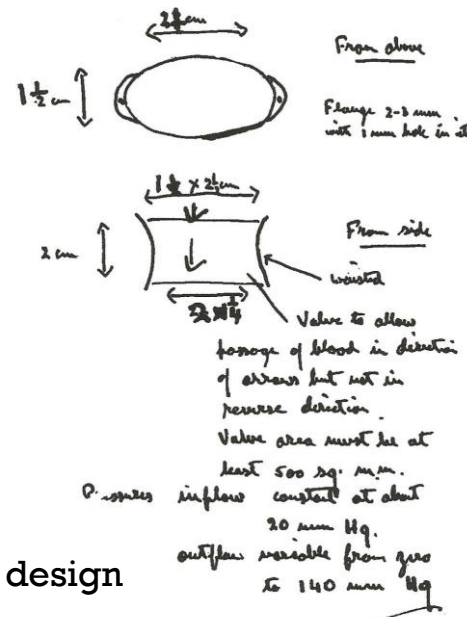 2½ cm
From above
1½ cm
Flange 2-3 mm
with 1 mm hole in it
1½ × 2½ cm
From side
2 cm
waisted
Valve to allow
passage of blood in direction
of arrows but not in
reverse direction.
Valve area must be at
least 500 sq. m.m.
Pressures inflow constant at about
20 mm Hg.
outflow variable from zero
to 140 mm Hg
design